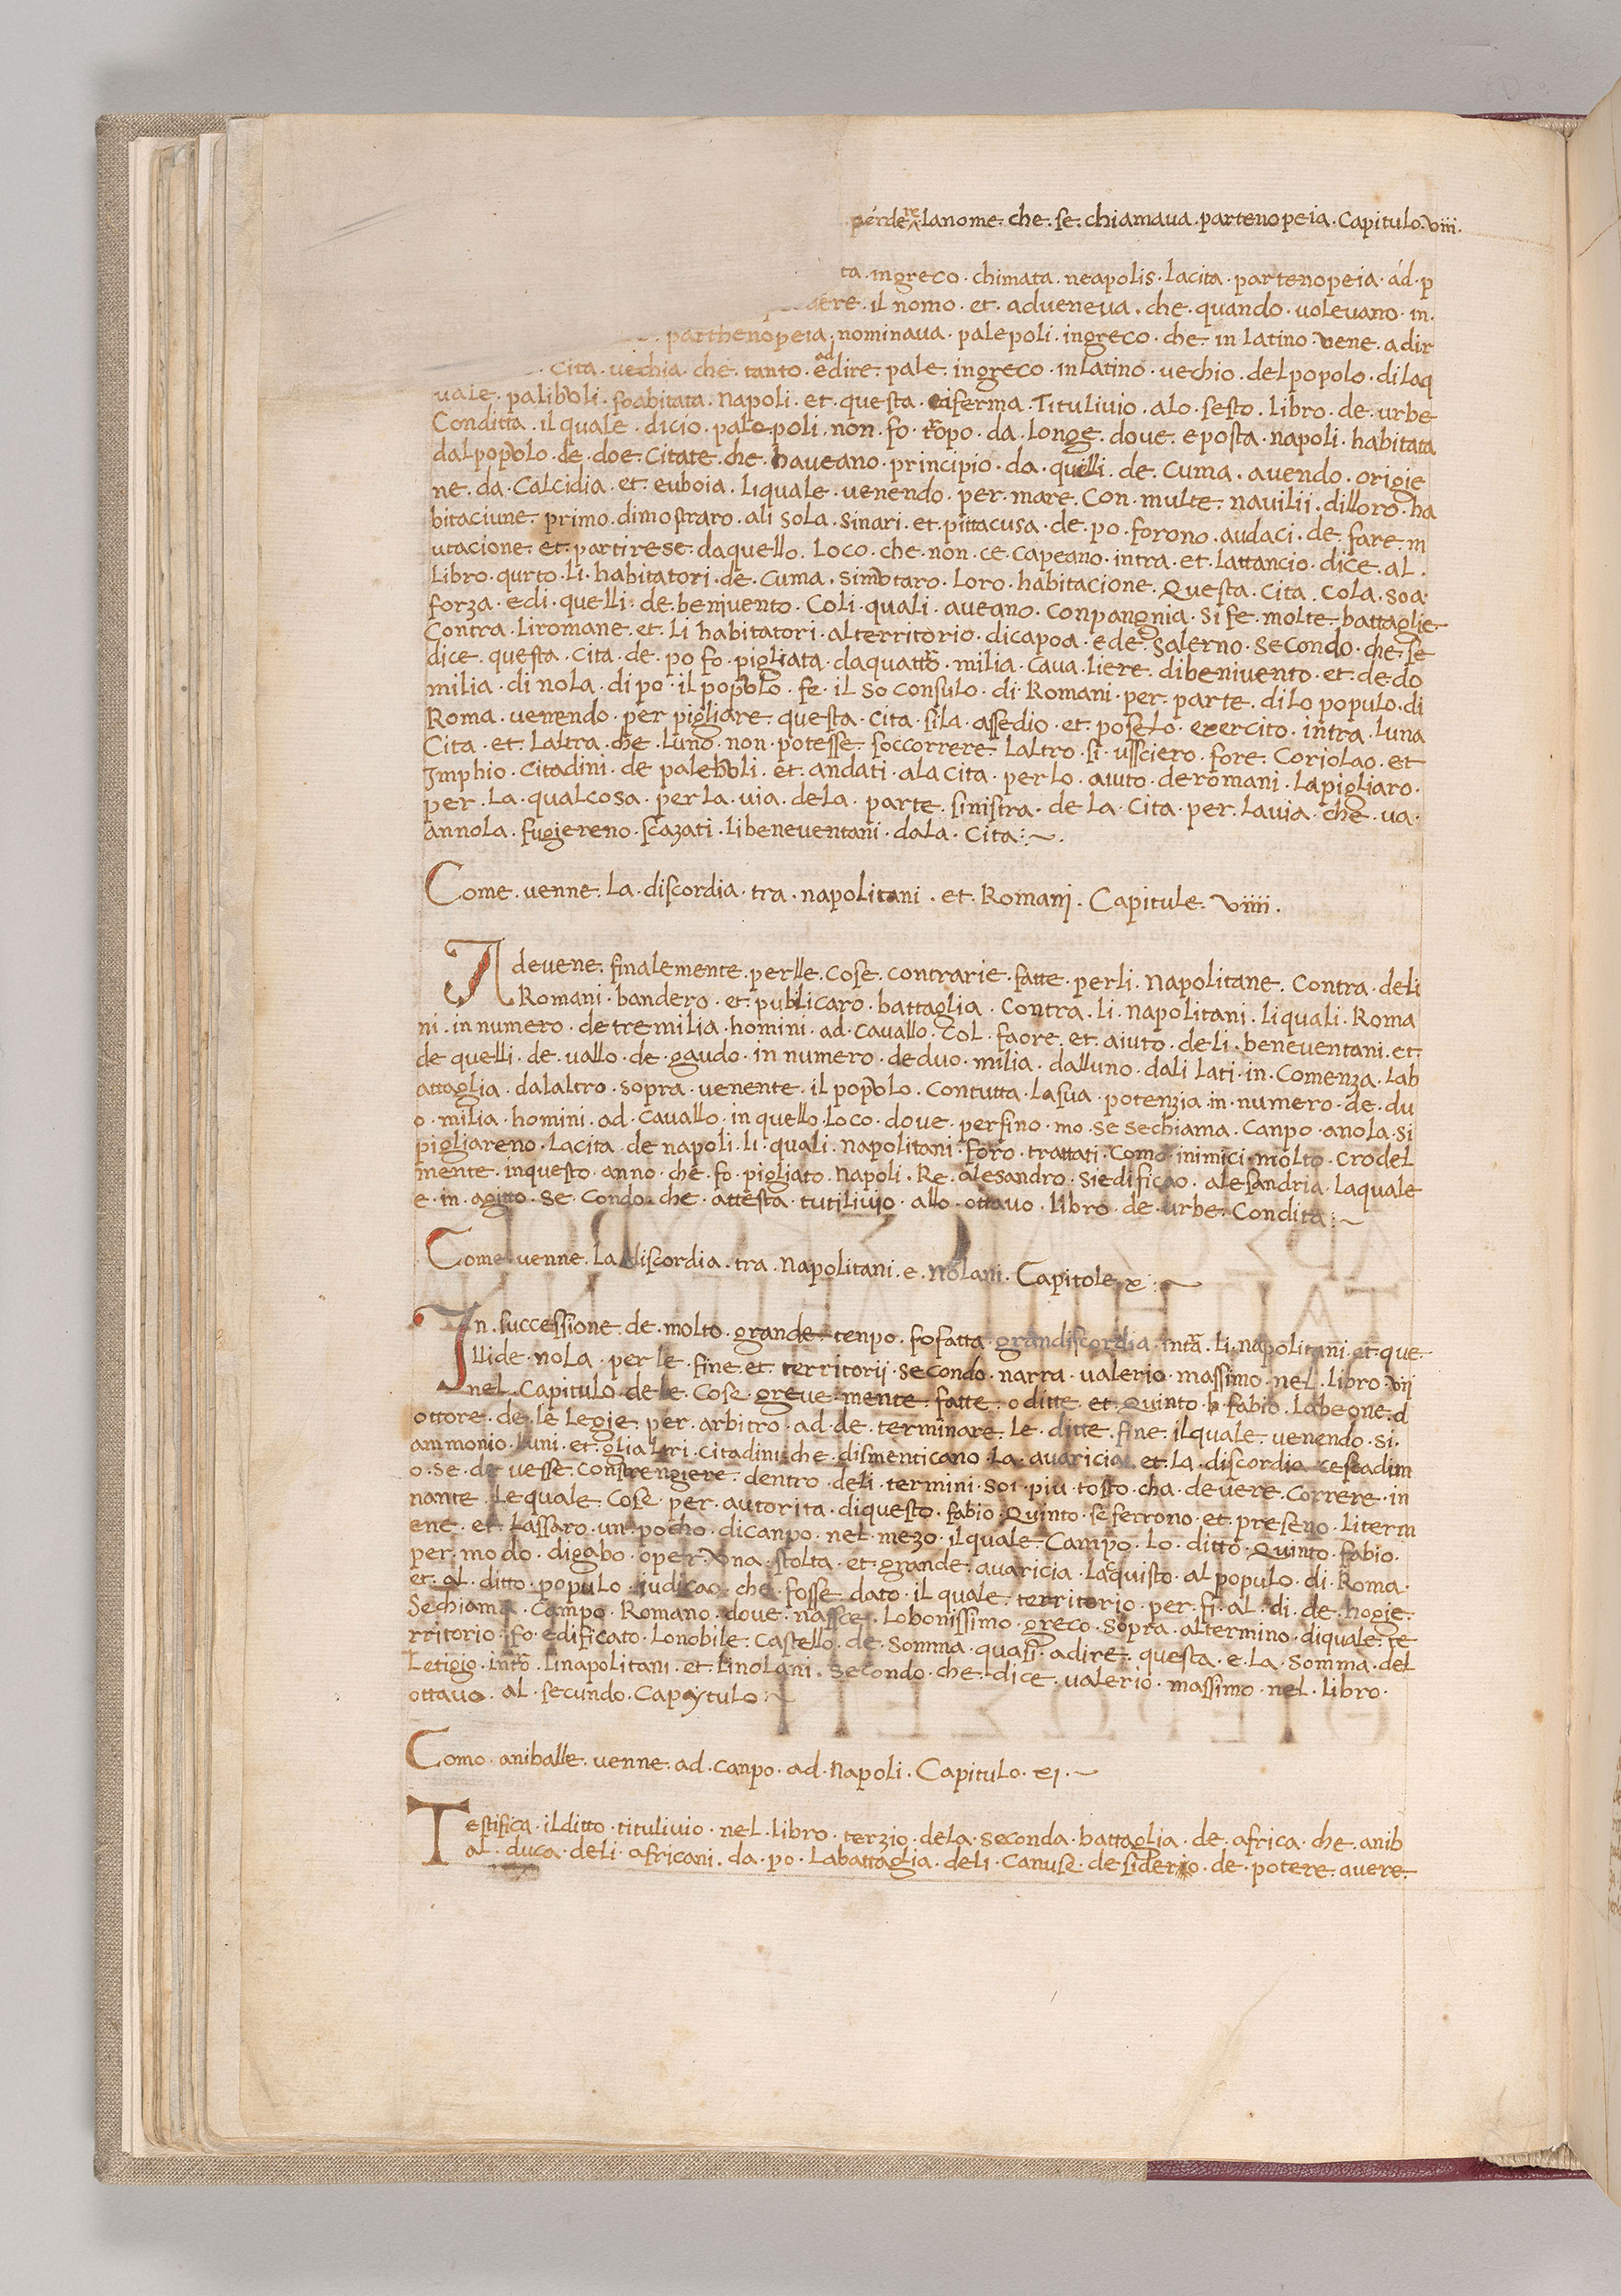 perdere . lanome . che . se . chiamava . partenopeia . Capitulo . viii .
ta . ingreco . chimata . neapolis . lacita . partenopeia . ad . p
il nomo . et . adveneva . che . quando . volevano . in .
parthenopeia . nominava . palepoli . ingreco . che . in latino . vene . a dir
. Cita . vechia . che . tanto . e ad dire . pale . ingreco . inlatino . vechio . delpopolo . dilaq
uale . paliboli . foabitata . napoli . et . questa . aiferma . Titulivio . alo . sesto . libro . de . urbe
Conditta . il quale . dicio . palepoli . non . fo . tropo . da . longe . dove . eposta . napoli . habitata
dalpopolo . de . doe . Citate . che . haveano . principio . da . quilli . de . Cuma . avendo . origie
ne . da . Calcidia . et . euboia . liquale . venendo . per . mare . Con . multe . navilii . dilloro . ha
bitaciune . primo . dimostraro . ali sola . sinari . et . pittacusa . de . po . forono . audaci . de . fare . m
utacione . et . partirese . daquello . loco . che . non . ce . capeano . intra . et . lattancio . dice . al .
libro . qurto . li . habitatori . de . cuma . simotaro . loro . habitacione . Questa . cita . cola . soa .
forza . edi . quelli . de . benivento . Coli . quali . aveano . conpangnia . si fe . molte . battaglie
Contra . liromane . et . li habitatori . alterritorio . dicapoa . e de . Salerno . secondo . che . se
dice . questa . cita . de . po fo . pigliata . daquattro . milia . cava . liere . dibenivento . et . de do
milia . di nola . di po . il popolo . fe . il so consulo . di . Romani . per . parte . dilo populo . di
Roma . venendo . per pigliare . questa . cita . sila . assedio . et . poselo . exercito . intra . luna
Cita . et . laltra . che . luno . non . potesse . soccorrere . laltro . si . ussciero . fore . Coriolao . et
Jmphio . Citadini . de paleboli . et . andati . ala cita . perlo . aiuto . deromani . lapigliaro .
per . la . qualcosa . perla . via . dela . parte . sinistra . de la . Cita . per . lavia . che . va .
annola . fugiereno . scazati . libeneventani . dala . cita :~ .
Come . venne . la . discordia . tra . napolitani . et . Romanj . Capitule . viiii .
A devene . finalemente . perlle . cose . contrarie . fatte . perli . napolitane . contra . deli
Romani . bandero . et . publicaro . battaglia . contra . li . napolitani . liquali . Roma
ni . in numero . de tremilia . homini . ad . cavallo . Col . faore . et . aiuto . deli . beneventani . et .
de quelli . de . vallo . de . gaudo . in numero . deduo . milia . dalluno . dali lati . in . Comenza . lab
attaglia . dalaltro . sopra . venente . il popolo . contutta . lasua . potenzia . in . numero . de . du
o . milia . homini . ad . cavallo . in quello . loco . dove . perfino . mo . se sechiama . canpo . anola . si
pigliareno . lacita . de napoli . li . quali . napolitani . foro . trattati . Como . inimici . molto . crodel
mente . inquesto . anno . che . fo . pigliato . napoli . Re . alesandro . siedificao . alesandria . laquale
e . in . agitto . se . condo . che . attesta . tutilivio . allo . ottavo . libro . de . urbe . condita :~
Come . venne . la . discordia . tra . napolitani . e . nolani . Capitole . x :~
In . successione . de . molto . grande . tenpo . fofatta . grandiscordia . intra . li . napolitani . et . que
llide . nola . per le . fine . et . territorii . secondo . narra . valerio . massimo . nel . libro . vii
nel . Capitulo . dele . Cose . greve . mente . fatte . o ditte . et . Quinto . fabio . labeone . d
ottore . de . le legie . per . arbitro . ad . de . terminare . le . ditte . fine . ilquale . venendo . si .
ammonio . luni . et . glialtri . citadini che . dismenticano . la . avaricia . et . la . discordia . cescadun
o . se . de vesse . constrengiere . dentro . deli . termini . soi . piu . tosto . cha . devere . correre . in
nante . lequale . Cose . per . autorita . diquesto . fabio . Quinto . seferrono . et . preseno . literm
ene . et . lassaro . un . pocho . dicanpo . nel . mezo . ilquale . Campo . lo . ditto . Quinto . fabio .
per . modo . digabo . oper . una . stolta . et . grande . avaricia . lacquisto . al populo . di . Roma .
et . al . ditto . populo . iudicao . che . fosse . dato . il quale . territorio . per . fi . al . di . de . hogie .
Sechiama . Campo . Romano . dove . nassce . lobonissimo . greco . sopra . altermino . diquale . te
rritorio . fo . edificato . lonobile . Castello . de . Somma . quasi . adire . questa . e . la . Somma . del
letigio . intro . linapolitani . et . linolani . secondo . che . dice . valerio . massimo . nel . libro .
ottavo . al . secundo . Capaytulo :~
Como . aniballe . venne . ad . canpo . ad . napoli . Capitulo . xi . ~
Testifica . ilditto . titulivio . nel . libro . terzio . dela . seconda . battaglia . de . africa . che . anib
al . duca . deli . africani . da . po . labattaglia . deli . Canuse . desiderio . de . potere . avere .